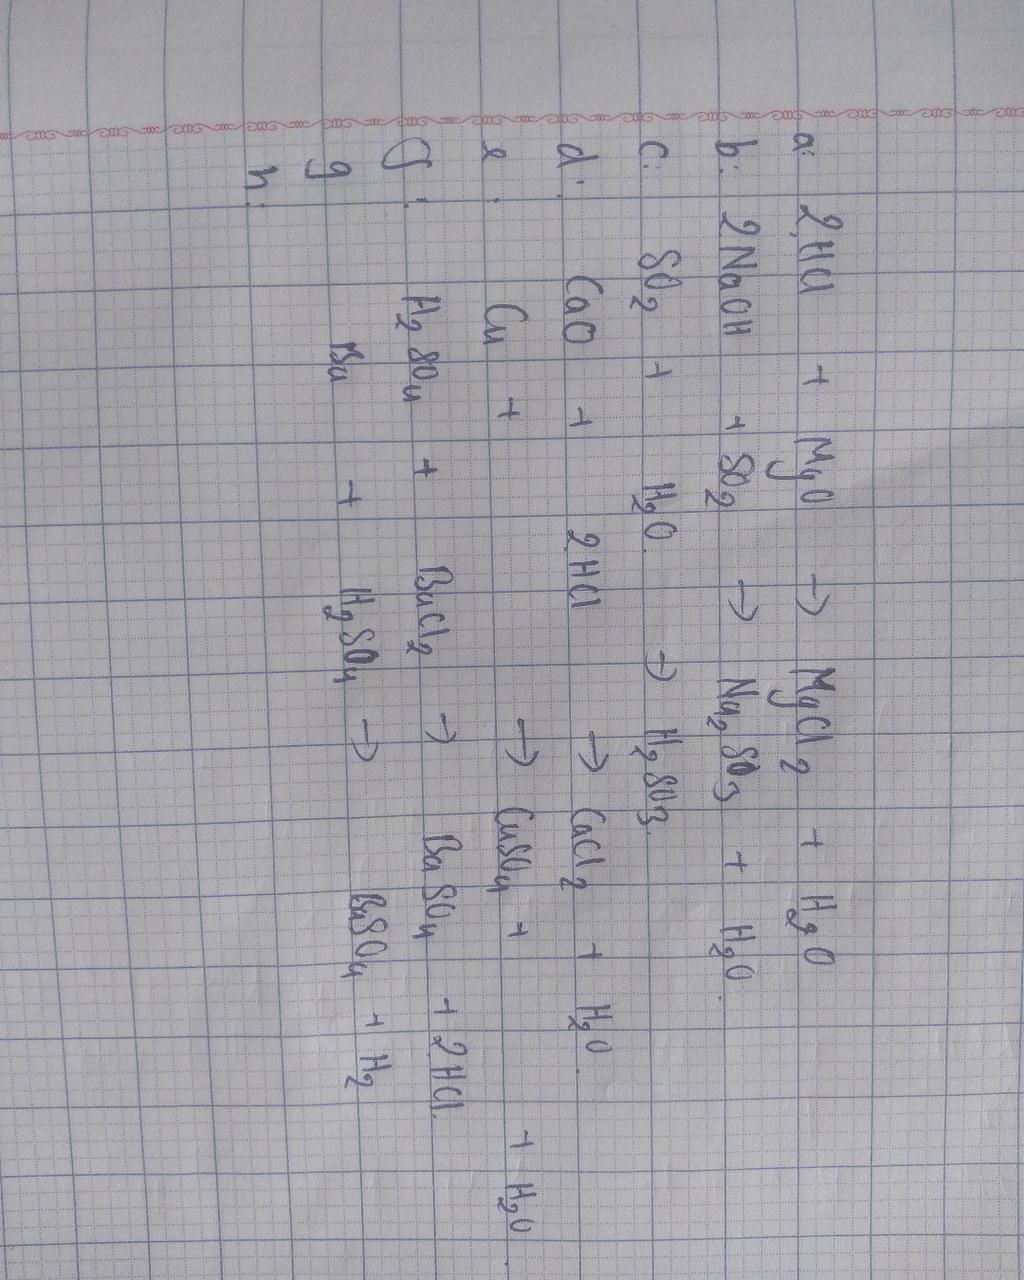 a: 2HCl + MgO → MgCl₂ + H₂O
b: 2NaOH + SO₂ → Na₂SO₃ + H₂O.
c: SO₂ + H₂O. → H₂SO₃.
d: CaO + 2HCl → CaCl₂ + H₂O.
e: Cu + → CuSO₄ + + H₂O.
f: H₂SO₄ + BaCl₂ → BaSO₄ + 2HCl.
g Ba + H₂SO₄ → BaSO₄ + H₂
h: